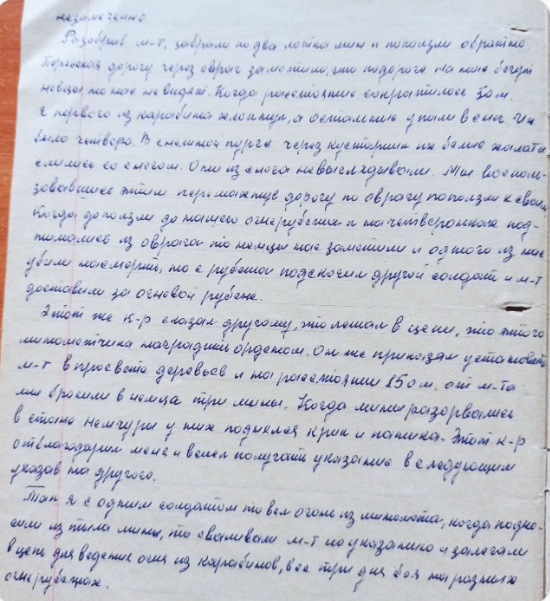 незамеченно.
Разобрав м-т, забрали по два лотка мин и поползли обратно
Переползая дорогу через овраг заметили, что по дороге на нас бегут
немцы но нас не видят. Когда расстояние сократилось 30м.
я первого из карабина хлопнул, а остальные упали в снег. Их
было четверо. В снежной пурге через кустарник их белые халаты
слились со снегом. Они из снега не выглядывали. Мы восполь-
зовавшись этим перемахнув дорогу по оврагу поползли к своим
Когда доползли до нашего огнерубежа и на четвереньках под-
нимались из оврага то немцы нас заметили и одного из нас
убили насмерть, но с рубежа подскочил другой солдат и м-т
доставили за огневой рубеж.
Этот же к-р сказал другому, что лежал в цепи, что этого
минометчика наградить орденом. Он же приказал установить
м-т в просвете деревьев и на расстоянии 150м. от м-та
мы бросили в немца три мины. Когда мины разорвались
в стане немчуры у них поднялся крик и паника. Этот к-р
отблагодарил меня и велел получать указание в следующем
указав на другого.
Так я с одним солдатом то вел огонь из миномета, когда подно-
сим из тыла мины, то сваливам м-т по указанию и залегам
в цепь для ведение огня из карабинов, все три дня боя на разных
огнерубежах.